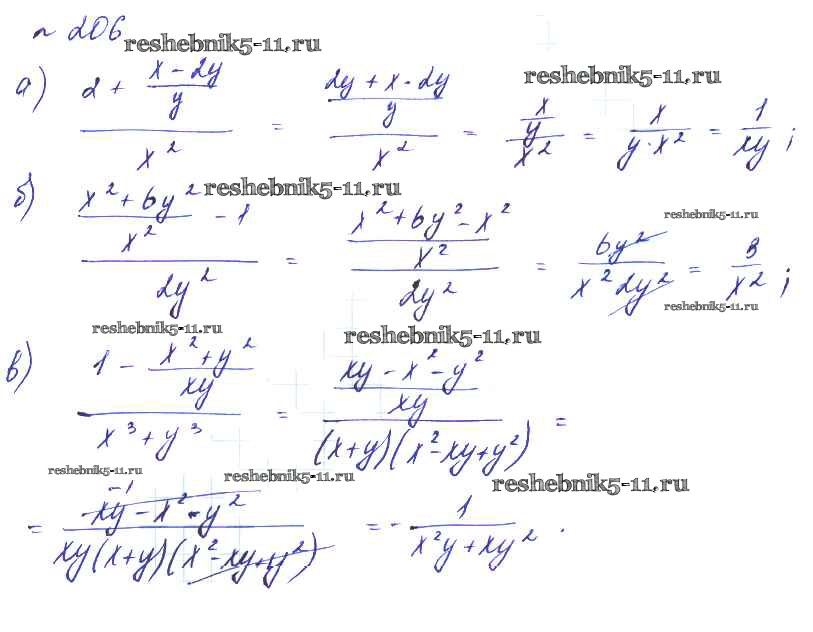 № 206
reshebnik5-11.ru
а) (2 + (x - 2y)/y)/x² = ((2y + x - 2y)/y)/x² = (x/y)/x² = x/(y·x²) = 1/(xy);
reshebnik5-11.ru
б) ((x² + 6y²)/x² - 1)/(2y²) = ((x² + 6y² - x²)/x²)/(2y²) = 6y²/(x² 2y²) = 3/x²;
reshebnik5-11.ru
reshebnik5-11.ru
reshebnik5-11.ru
reshebnik5-11.ru
reshebnik5-11.ru
в) (1 - (x² + y²)/(xy))/(x³ + y³) = ((xy - x² - y²)/(xy))/((x+y)(x² - xy + y²)) =
reshebnik5-11.ru
reshebnik5-11.ru
reshebnik5-11.ru
-1
= (xy - x² - y²)/(xy(x+y)(x² - xy + y²)) = - 1/(x²y + xy²).